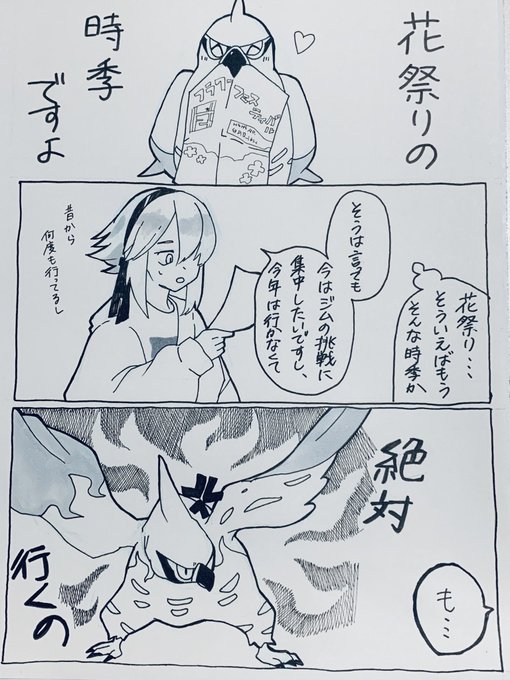 花祭りの
時季
ですよ
フラワーフェス
ティバル
花祭り…
そういえばもう
そんな時季か
そうは言っても
今はジムの挑戦に
集中したいですし、
今年は行かなくて
昔から
何度も行ってるし
も…
絶対
行くの